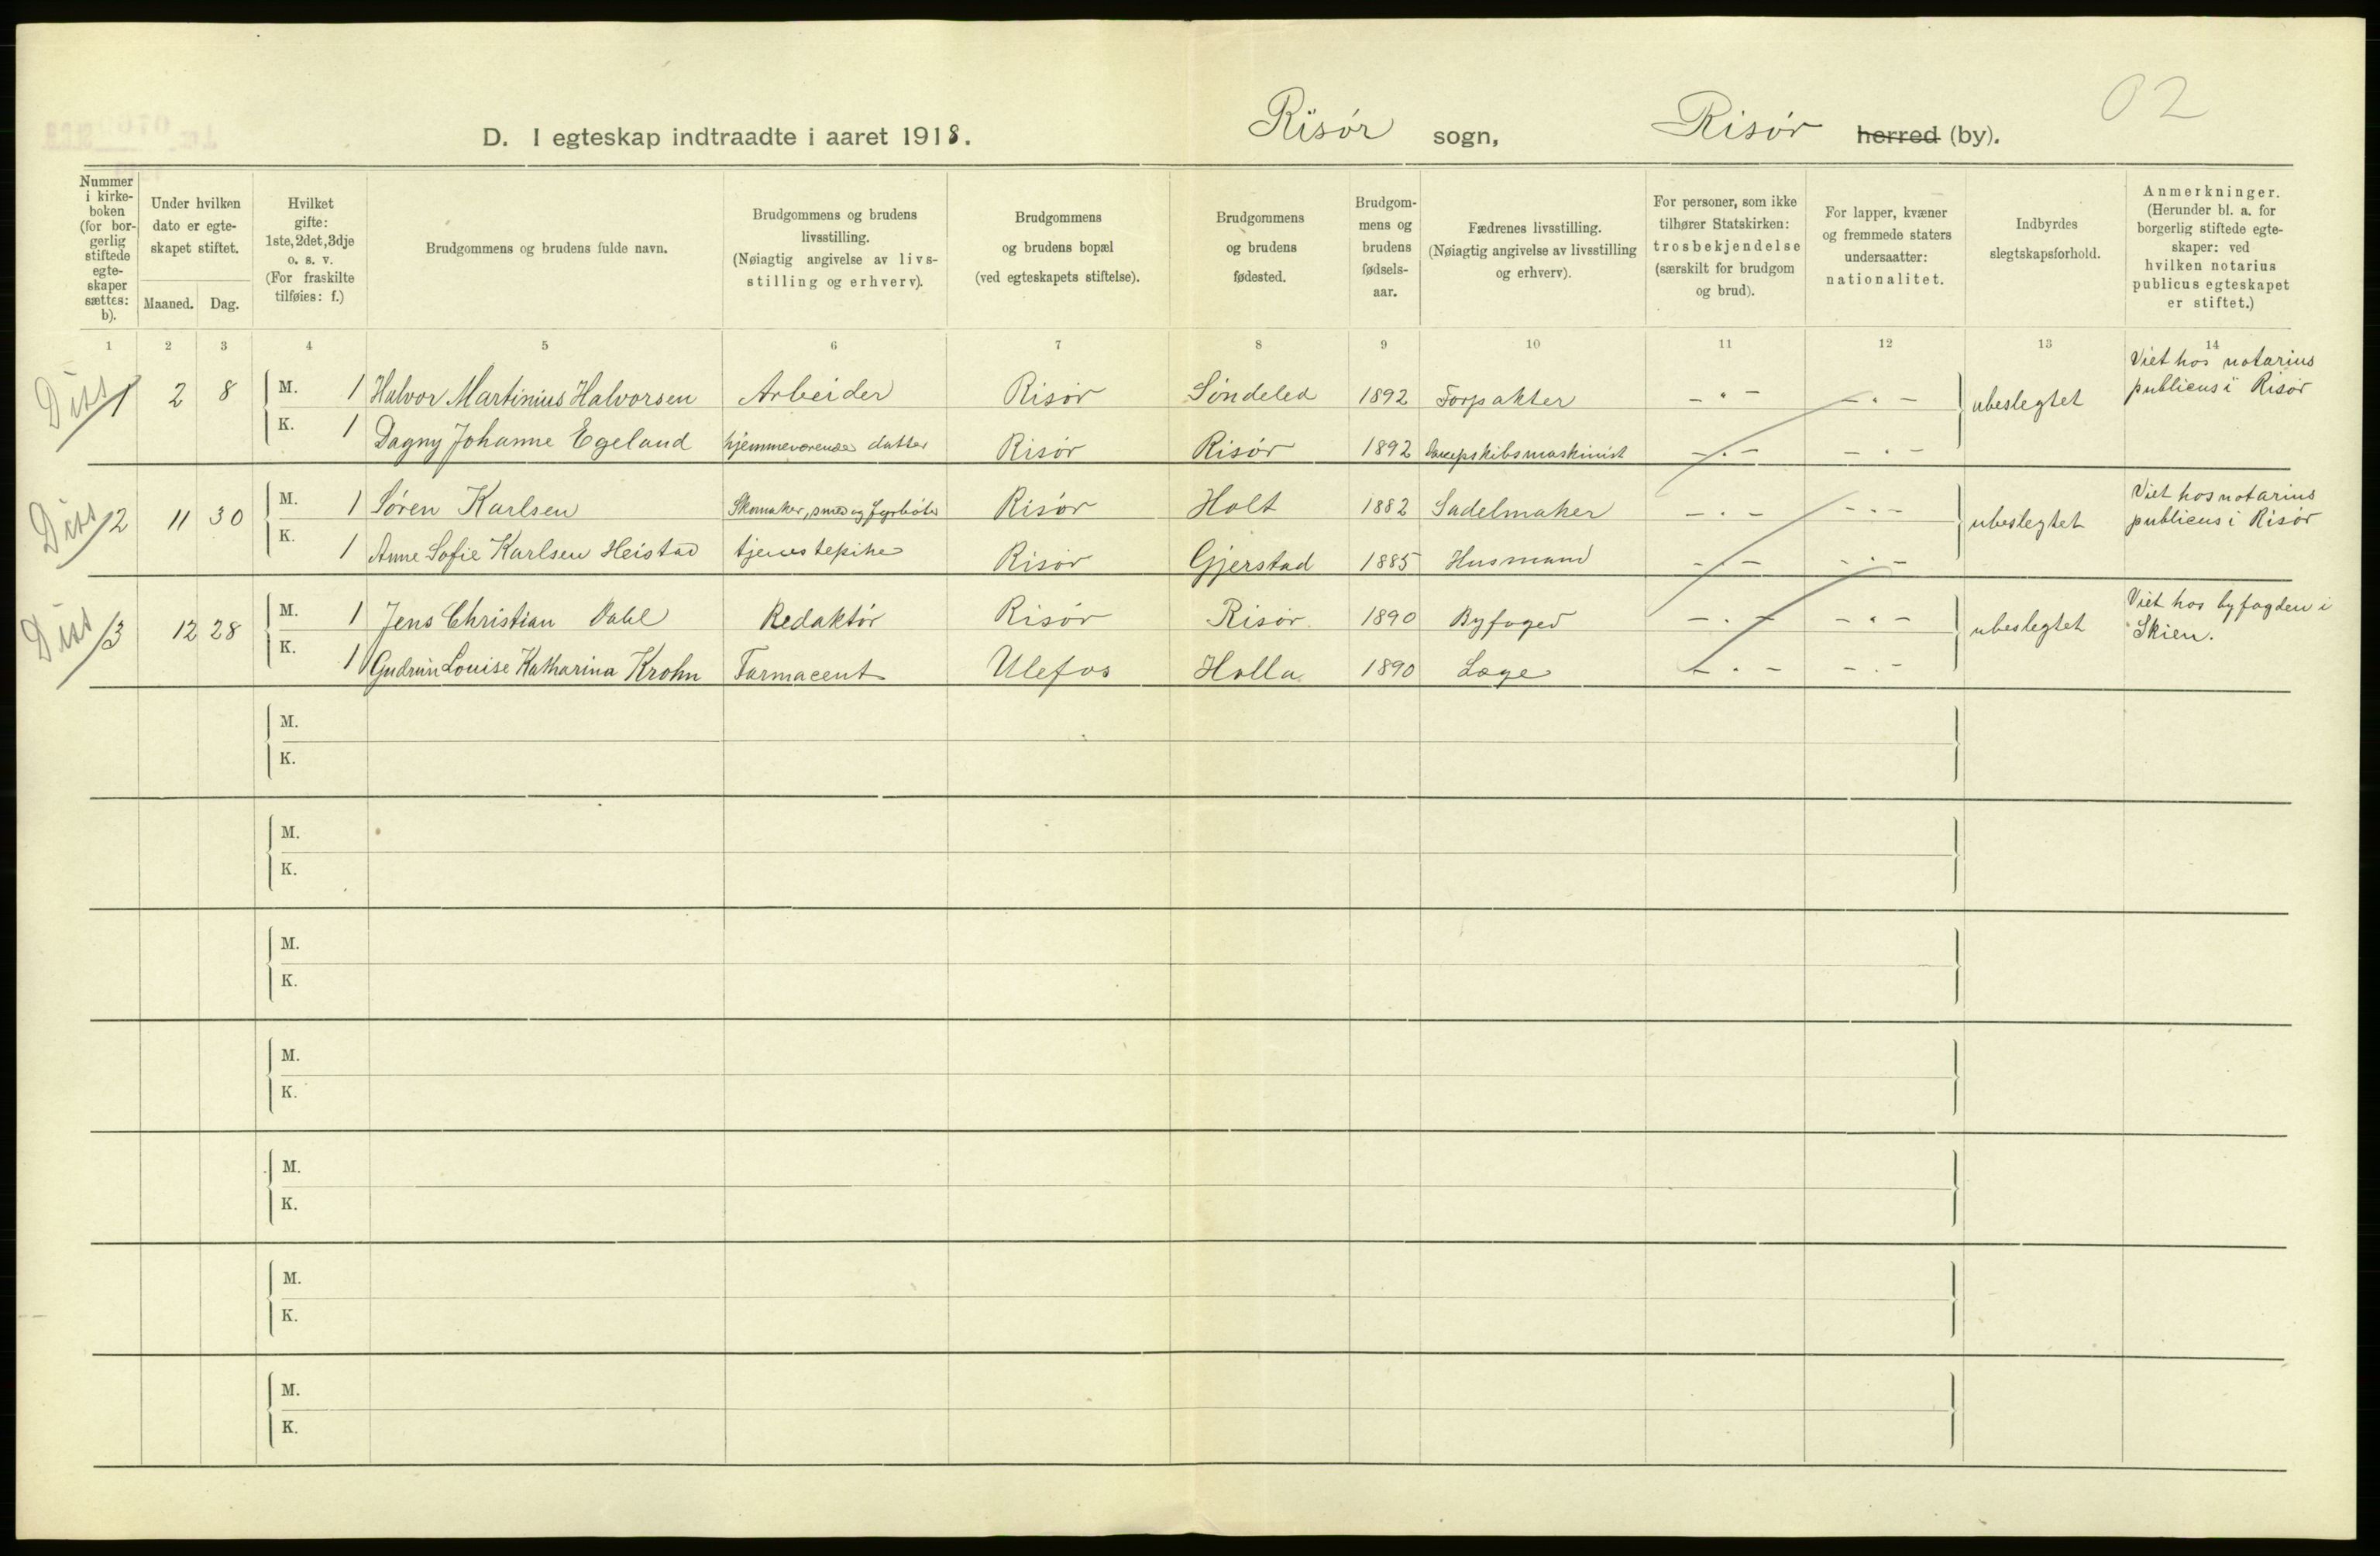 02
D. I egteskap indtraadte i aaret 1918. Risør sogn, Risør herred (by).
Nummer
i kirke-
boken
(for bor-
gerlig
stiftede
egte-
skaper
sættes:
b).
Under hvilken
dato er egte-
skapet stiftet.
Maaned. Dag.
Hvilket
gifte:
1ste, 2det, 3dje
o. s. v.
(For fraskilte
tilføies: f.)
Brudgommens og brudens fulde navn.
Brudgommens og brudens
livsstilling.
(Nøiagtig angivelse av livs-
stilling og erhverv).
Brudgommens
og brudens bopæl
(ved egteskapets stiftelse).
Brudgommens
og brudens
fødested.
Brudgom-
mens og
brudens
fødsels-
aar.
Fædrenes livsstilling.
(Nøiagtig angivelse av livsstilling
og erhverv).
For personer, som ikke
tilhører Statskirken:
trosbekjendelse
(særskilt for brudgom
og brud).
For lapper, kvæner
og fremmede staters
undersaatter:
nationalitet.
Indbyrdes
slegtskapsforhold.
Anmerkninger.
(Herunder bl. a. for
borgerlig stiftede egte-
skaper: ved
hvilken notarius
publicus egteskapet
er stiftet.)
1 2 3 4 5 6 7 8 9 10 11 12 13 14
Diss 1 2 8 M. 1 Halvor Martinius Halvorsen Arbeider Risør Søndeled 1892 Forpakter - " - - " - ubeslegtet Viet hos notarius
publicus i Risør
K. 1 Dagny Johanne Egeland hjemmeværende datter Risør Risør 1892 Dampskibsmaskinist - " - - " -
Diss 2 11 30 M. 1 Søren Karlsen Skomaker, smed og fyrbøter Risør Holt 1882 Sadelmaker - " - - " - ubeslegtet Viet hos notarius
publicus i Risør
K. 1 Anne Sofie Karlsen Heistad tjenestepike Risør Gjerstad 1885 Husmand - " - - " -
Diss 3 12 28 M. 1 Jens Christian Dahl Redaktør Risør Risør 1890 Byfoged - " - - " - ubeslegtet Viet hos byfogden i
Skien.
K. 1 Gudrun Louise Katharina Krohn Farmaceut Ulefos Holla 1890 Læge - " - - " -
M.
K.
M.
K.
M.
K.
M.
K.
M.
K.
M.
K.
M.
K.